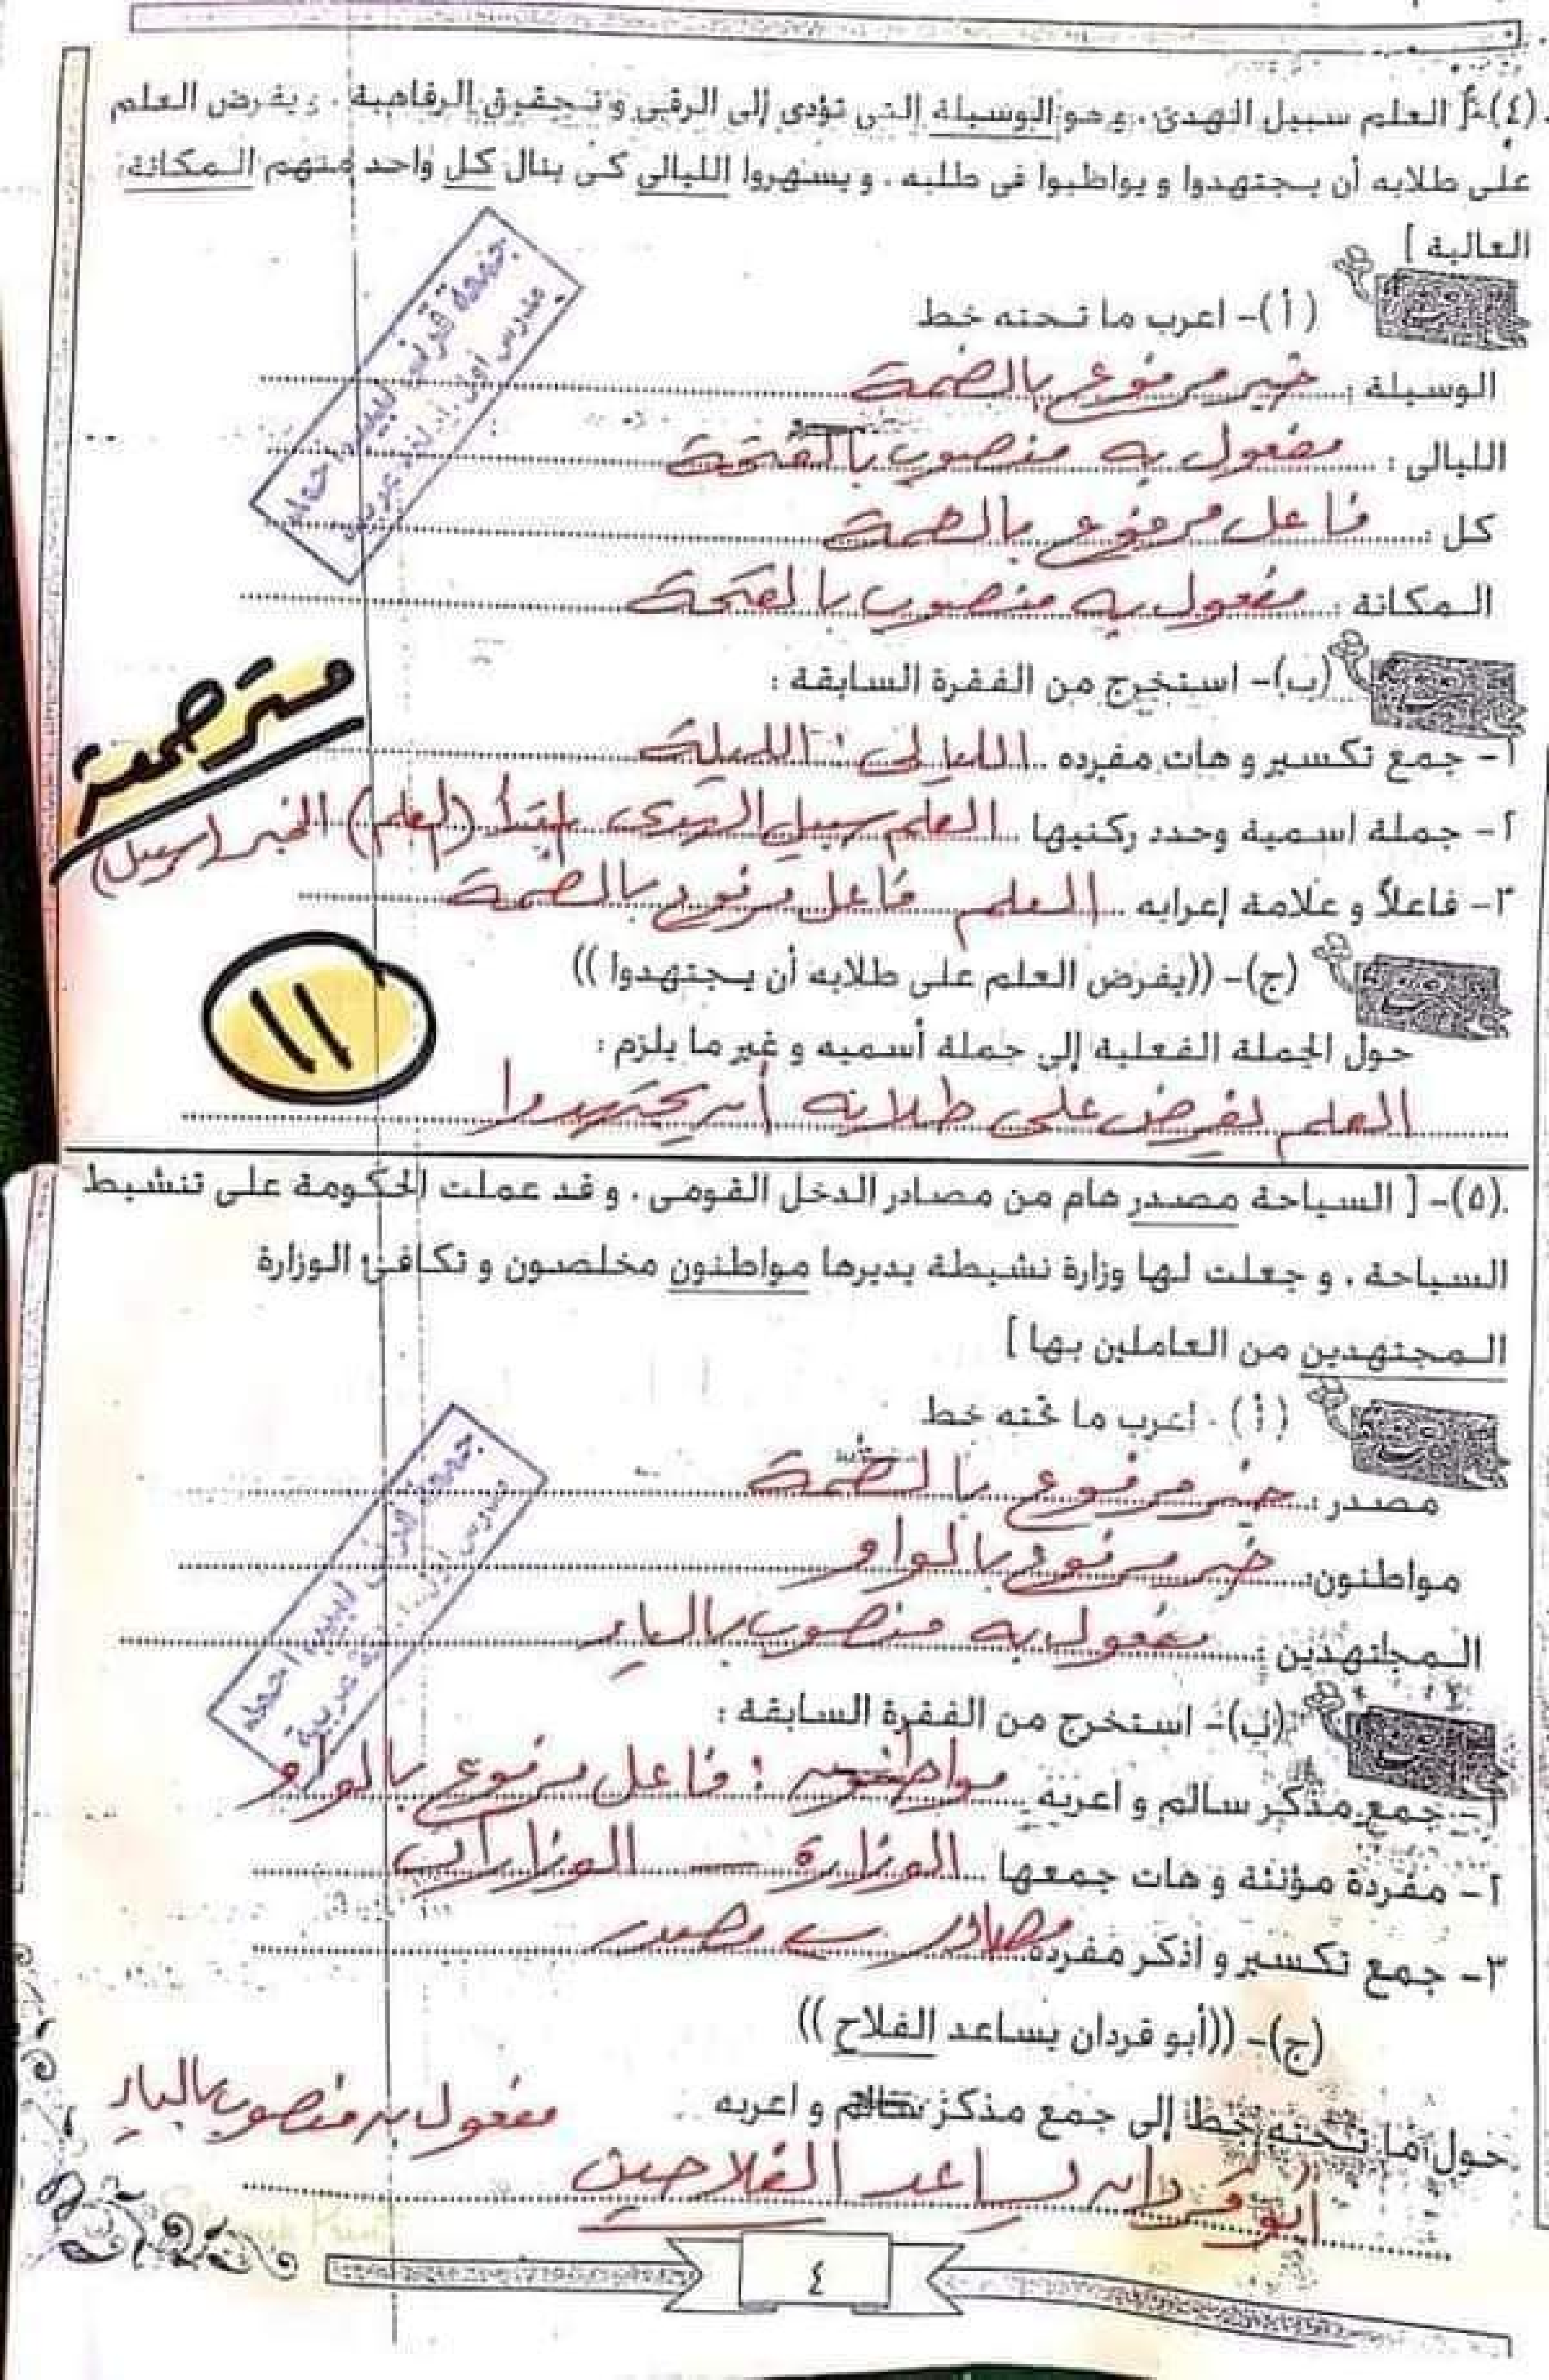 (٤)- [ العلم سبيل الهدى . وهو الوسيلة التى تؤدى إلى الرقى وتحقيق الرفاهية . ويفرض العلم
على طلابه أن يجتهدوا و يواظبوا فى طلبه . و يسهروا الليالى كى ينال كل واحد منهم المكانة
العالية ]
(أ)- اعرب ما تحته خط
الوسيلة : خبر مرفوع بالضمة
الليالى : مفعول به منصوب بالفتحة
كل : فاعل مرفوع بالضمة
المكانة : مفعول به منصوب بالفتحة
(ب)- استخرج من الفقرة السابقة :
١- جمع تكسير و هات مفرده الليالى : الليلة
مترجمة
٢- جملة اسمية وحدد ركنيها العلم سبيل الهدى مبتدأ (العلم) الخبر (سبيل)
٣- فاعلاً و علامة إعرابه العلم فاعل مرفوع بالضمة
(ج)- ((يفرض العلم على طلابه أن يجتهدوا))
١١
حول الجملة الفعلية إلى جملة أسميه و غير ما يلزم :
العلم يفرض على طلابه أن يجتهدوا
(٥)- [ السياحة مصدر هام من مصادر الدخل القومى . و قد عملت الحكومة على تنشيط
السياحة . و جعلت لها وزارة نشيطة يديرها مواطنون مخلصون و تكافئ الوزارة
المجتهدين من العاملين بها ]
(أ) . اعرب ما تحته خط
مصدر : خبر مرفوع بالضمة
مواطنون : خبر مرفوع بالواو
المجتهدين : مفعول به منصوب بالياء
(ب)- استخرج من الفقرة السابقة :
١- جمع مذكر سالم و اعربه مواطنون : فاعل مرفوع بالواو
٢- مفردة مؤنثة و هات جمعها الوزارة - الوزارات
٣- جمع تكسير و أذكر مفرده مصادر - مصدر
(ج)- ((أبو قردان يساعد الفلاح))
حول ما تحته خط إلى جمع مذكر سالم و اعربه مفعول به منصوب بالياء
أبو قردان يساعد الفلاحين
٤